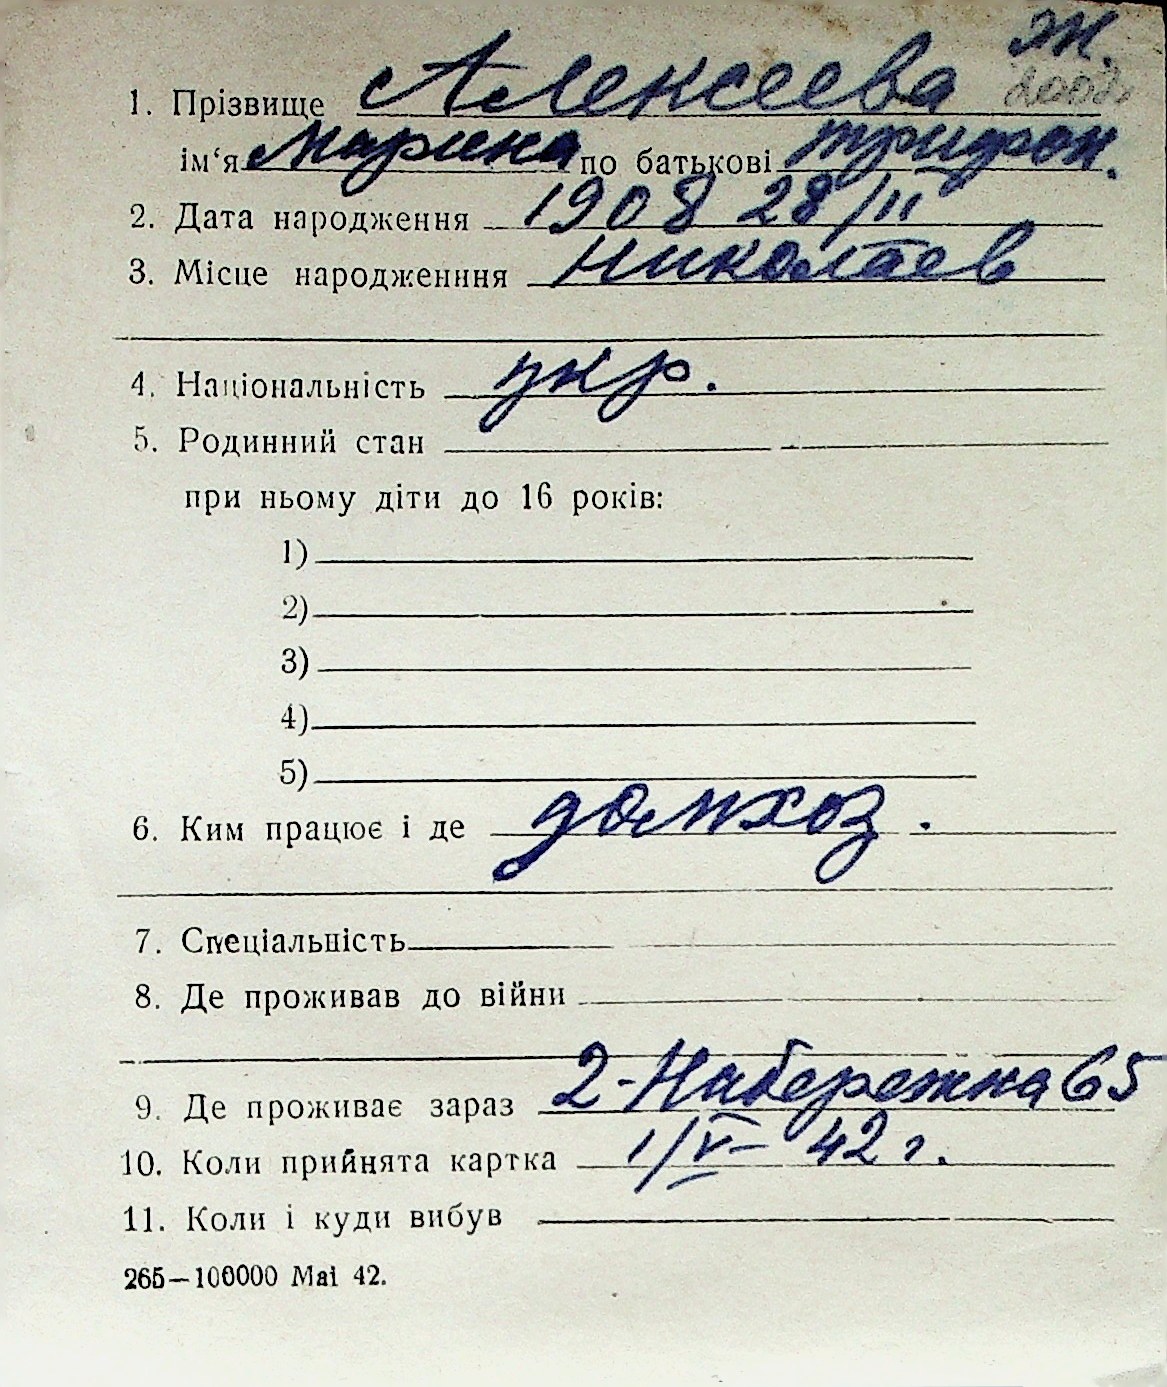 Ж.
1. Прізвище Алексеева
ім‘я Марина по батькові Трифон.
2. Дата народження 1908 28/II
3. Місце народженння Николаев
4. Національність укр.
5. Родинний стан
при ньому діти до 16 років:
1)
2)
3)
4)
5)
6. Ким працює і де домхоз.
7. Спеціальність
8. Де проживав до війни
9. Де проживає зараз 2-Набережна 65
10. Коли прийнята картка 1/V- 42 г.
11. Коли і куди вибув
265—100000 Mai 42.